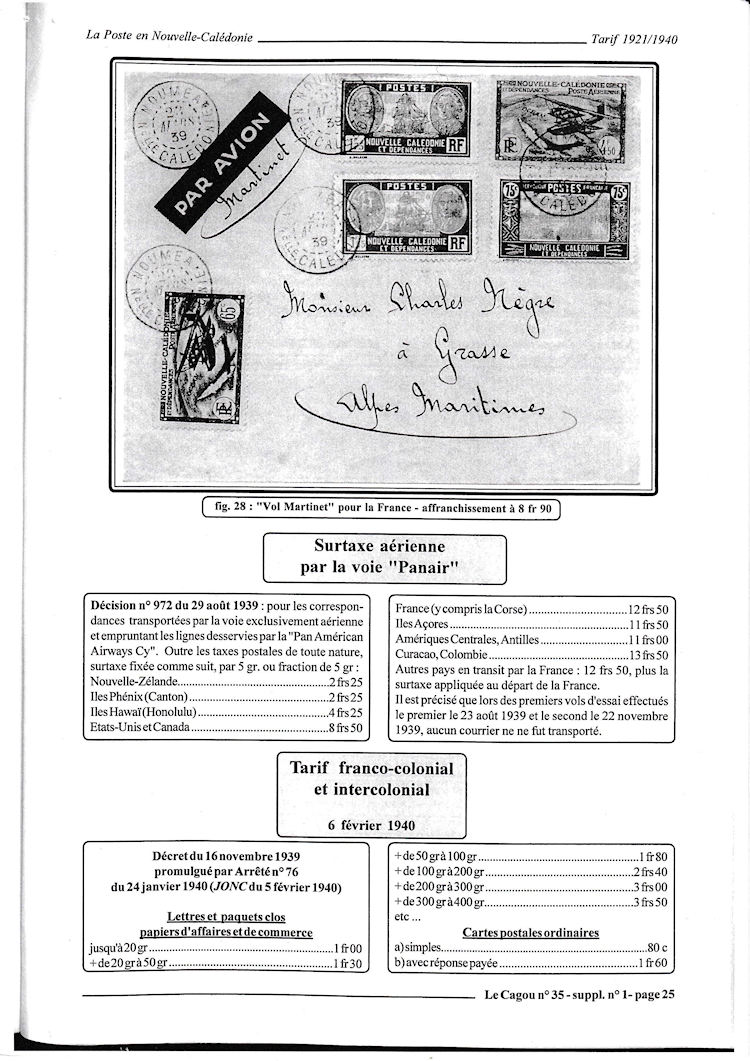 La Poste en Nouvelle-Calédonie
Tarif 1921/1940
NOUMEA
39
Nelle CALEDONIE
PAR AVION
Martinet
POSTES
NOUVELLE CALÉDONIE
ET DÉPENDANCES
RF
NOUVELLE-CALÉDONIE
ET DÉPENDANCES POSTE AÉRIENNE
POSTES
NOUVELLE CALÉDONIE
ET DÉPENDANCES
RF
39
75c POSTES 75c
NOUVELLE CALÉDONIE
ET DÉPENDANCES
NOUMEA
NOUVELLE-CALÉDONIE
ET DÉPENDANCES POSTE AÉRIENNE
65c
Monsieur Charles Nègre
à Grasse
Alpes Maritimes
fig. 28 : "Vol Martinet" pour la France - affranchissement à 8 fr 90
Surtaxe aérienne
par la voie "Panair"
Décision n° 972 du 29 août 1939 : pour les correspon-
dances transportées par la voie exclusivement aérienne
et empruntant les lignes desservies par la "Pan Américan
Airways Cy". Outre les taxes postales de toute nature,
surtaxe fixée comme suit, par 5 gr. ou fraction de 5 gr :
Nouvelle-Zélande...2 frs 25
Iles Phénix (Canton)...2 frs 25
Iles Hawaï (Honolulu)...4 frs 25
Etats-Unis et Canada...8 frs 50
France (y compris la Corse)...12 frs 50
Iles Açores...11 frs 50
Amériques Centrales, Antilles...11 frs 00
Curacao, Colombie...13 frs 50
Autres pays en transit par la France : 12 frs 50, plus la
surtaxe appliquée au départ de la France.
Il est précisé que lors des premiers vols d'essai effectués
le premier le 23 août 1939 et le second le 22 novembre
1939, aucun courrier ne ne fut transporté.
Tarif franco-colonial
et intercolonial
6 février 1940
Décret du 16 novembre 1939
promulgué par Arrêté n° 76
du 24 janvier 1940 (JONC du 5 février 1940)
Lettres et paquets clos
papiers d'affaires et de commerce
jusqu'à 20 gr...1 fr 00
+ de 20 gr à 50 gr...1 fr 30
+ de 50 gr à 100 gr...1 fr 80
+ de 100 gr à 200 gr...2 frs 40
+ de 200 gr à 300 gr...3 frs 00
+ de 300 gr à 400 gr...3 frs 50
etc ...
Cartes postales ordinaires
a) simples...80 c
b) avec réponse payée...1 fr 60
Le Cagou n° 35 - suppl. n° 1- page 25